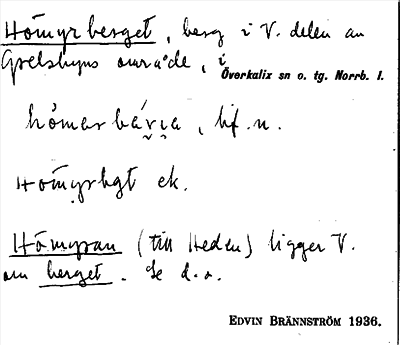 Hömyrberget, berg i V. delen av
Grelsbyns område, i
Överkalix sn o. tg. Norrb. l.
hö̀mar bä́rɩa, bf. n.
Hömyrbgt ek.
Hömyran (till Heden) ligger V.
om berget. Se d. o.
EDVIN BRÄNNSTRÖM 1936.